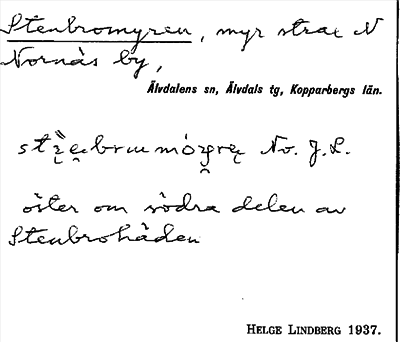 Stenbromyren, myr strax N
Nornäs by,
Älvdalens sn, Älvdals tg, Kopparbergs län.
No. J. L.
öster om södra delen av
Stenbrohåden
HELGE LINDBERG 1937.